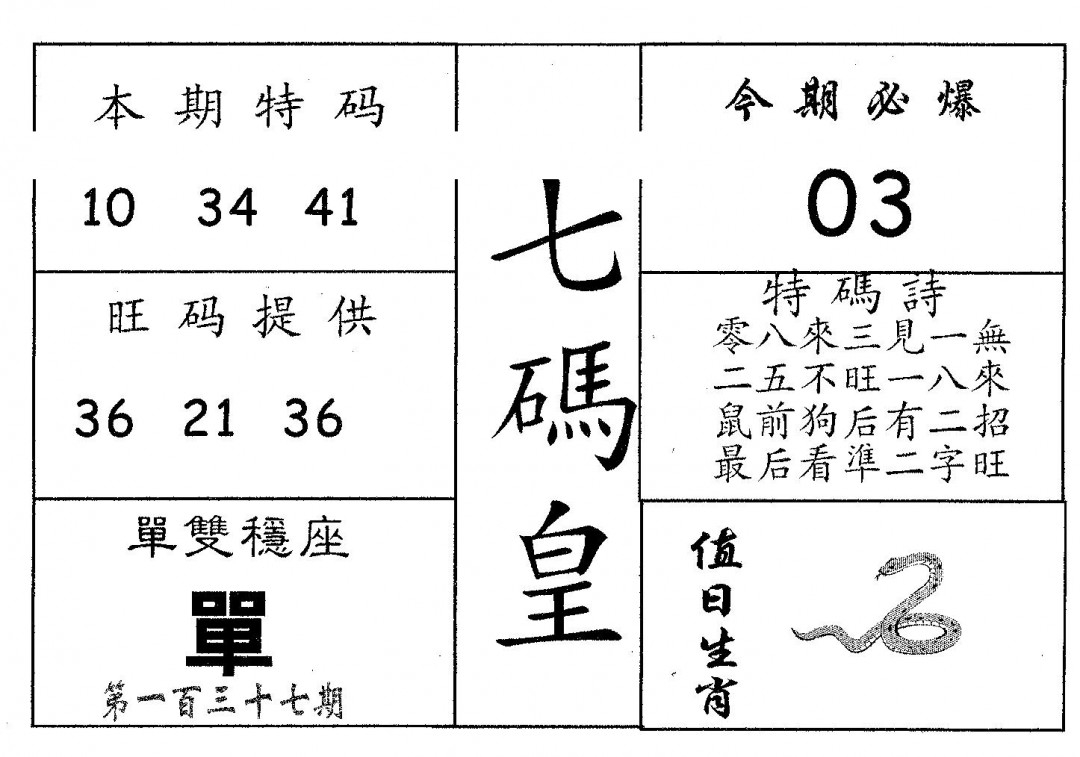 本期特码
10 34 41
旺码提供
36 21 36
單雙穩座
單
第一百三十七期
七碼皇
今期必爆
03
特碼詩
零八來三見一無
二五不旺一八來
鼠前狗后有二招
最后看準二字旺
值日生肖